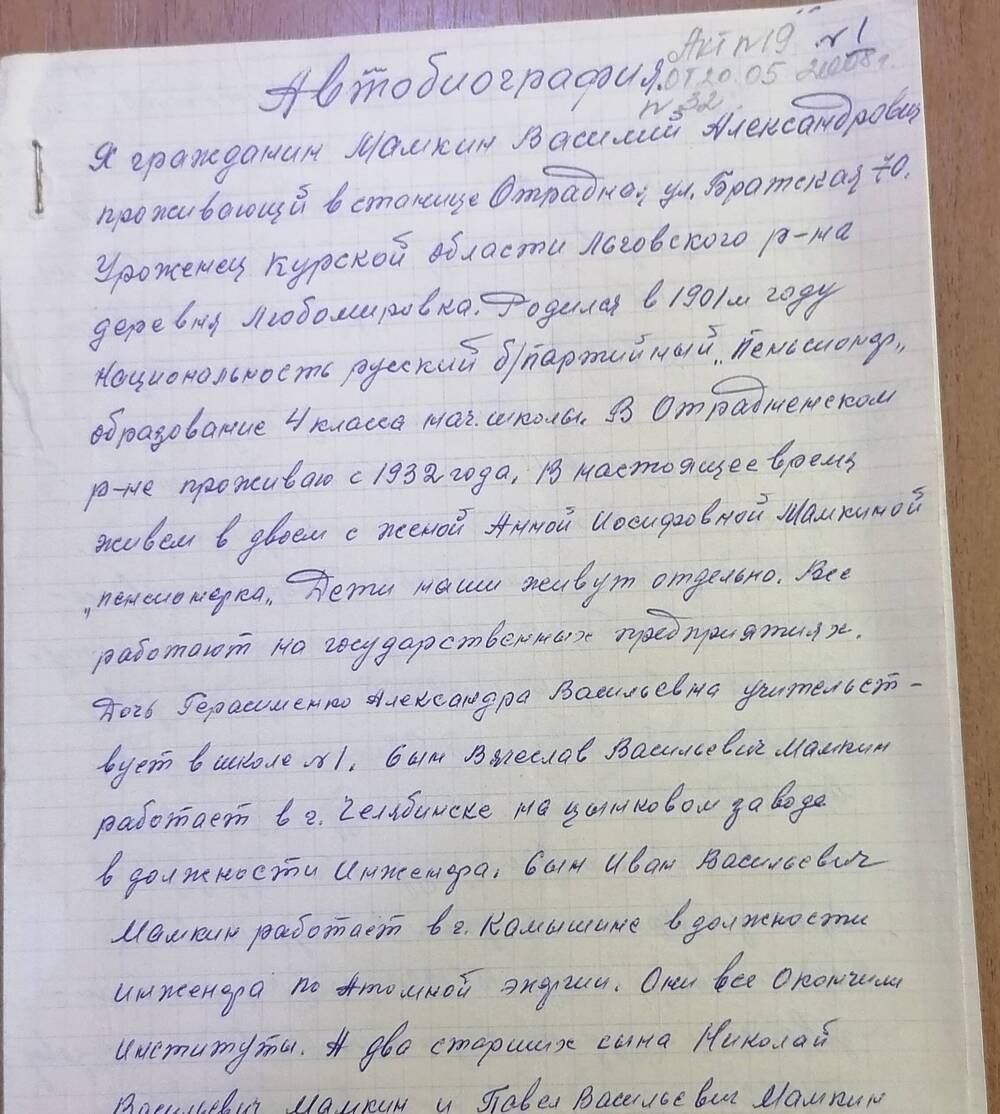 Акт № 19 № 1
от 20.05 2008 г.
№ 32
Автобиография.
Я гражданин Мамкин Василий Александрович
проживающй в станице Отрадна, ул. Братская 70.
Уроженец Курской области Льговского р-на
деревня Любомировка. Родился в 1901м году
национальность русский б/партийный „Пеньсионэр„
образование 4 класса нач. школы. В Отрадненском
р-не проживаю с 1932 года. В настоящее время
живем в двоем с женой Анной Иосифовной Мамкиной
„пенсионерка„ Дети наши живут отдельно. Все
работают на государственных предприятиях.
Дочь Герасименко Александра Васильевна учительст-
вует в школе №1. Сын Вячеслав Васильевич Мамкин
работает в г. Челябинске на цынковом заводе
в должности Инженэра. Сын Иван Васильевич
Мамкин работает в г. Камышине в должности
инженэра по Атомной энэргии. Они все окончили
институты. А два старших сына Николай
Васильевич Мамкин и Павел Васильевич Мамкин